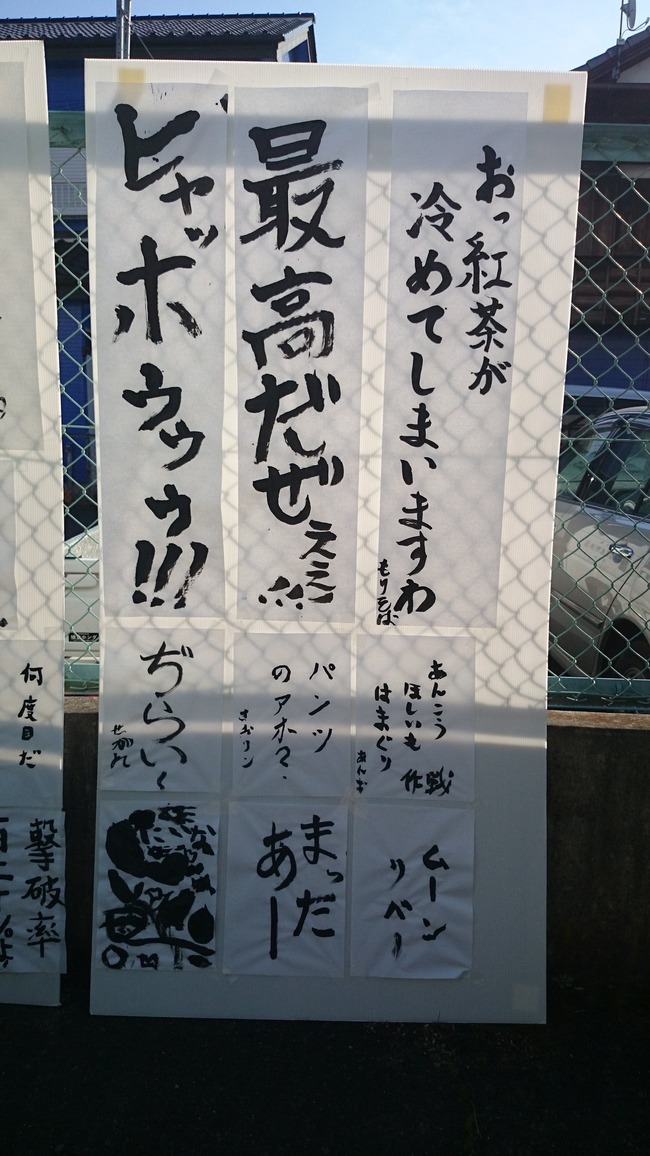 おっ紅茶が
冷めてしまいますわ
もりそば
最高だぜェェ!!!
ヒャッボゥゥゥ!!!
あんこう
ほしいも
はまぐり
作戦
パンツ
のアホ?
さおリン
ぢらいく
ムーン
リベー
まっだ
あー
何度目だ
撃破率